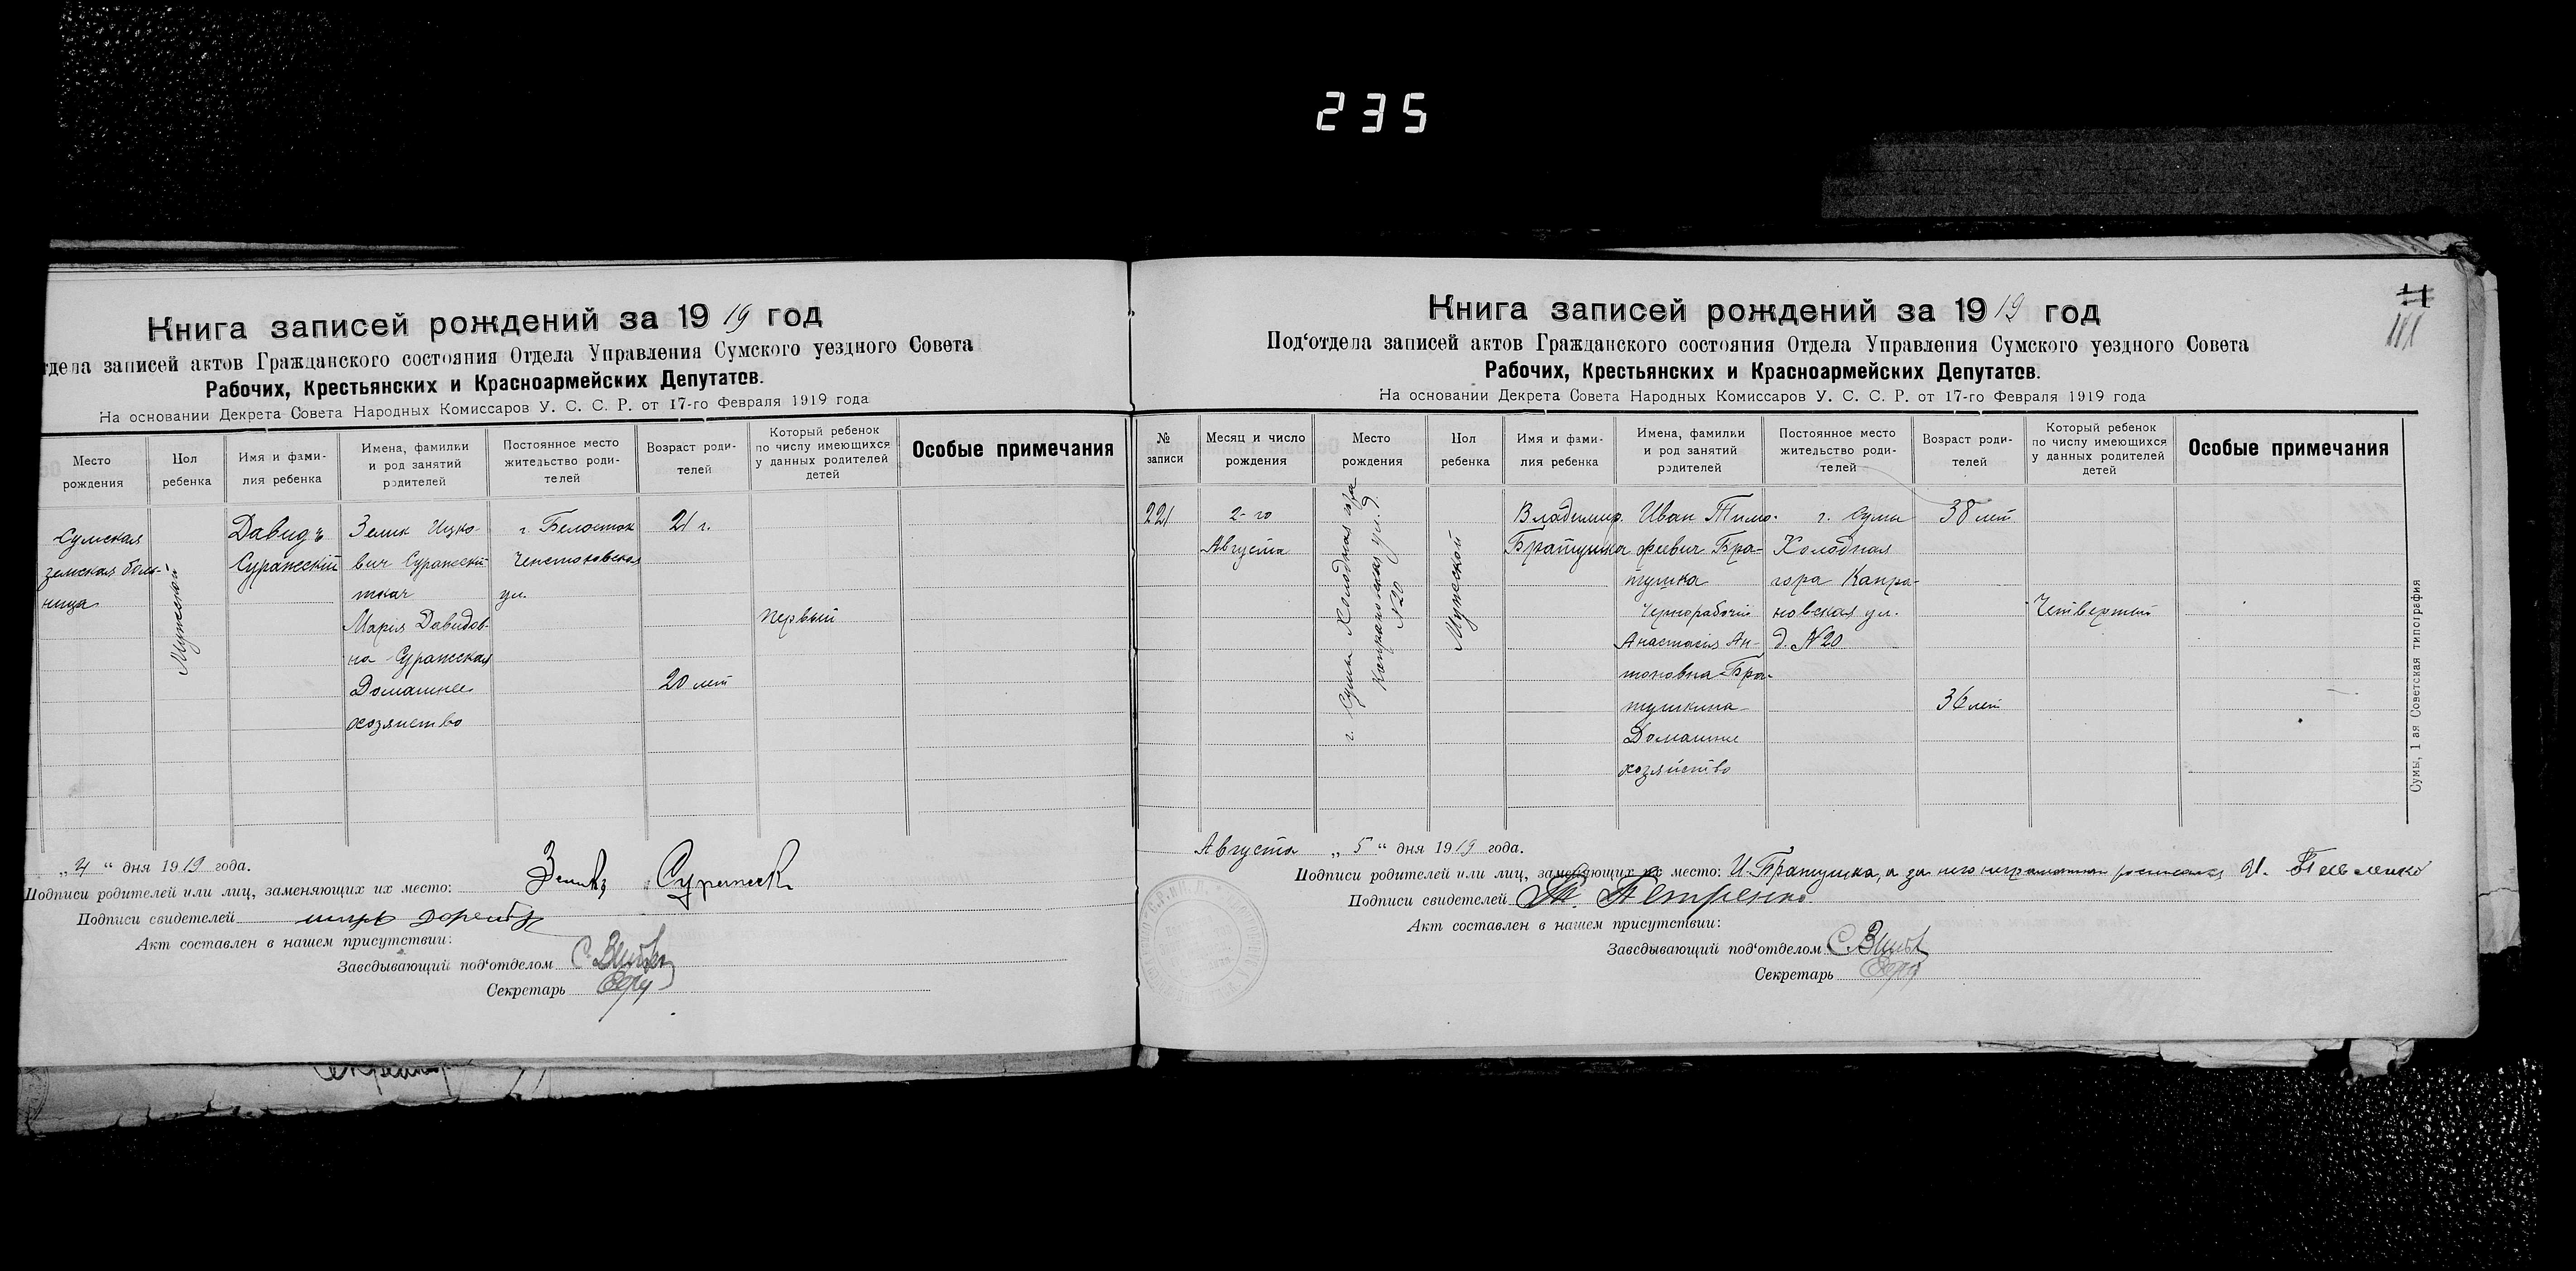 235
Книга записей рождений за 1919 год
тдела записей актов Гражданского состояния Отдела Управления Сумского уездного Совета
Рабочих, Крестьянских и Красноармейских Депутатов.
На основании Декрета Совета Народных Комиссаров У. С. С. Р. от 17-го Февраля 1919 года
Место рождения
Пол ребенка
Имя и фами-
лия ребенка
Имена, фамилии
и род занятий
родителей
Постоянное место
жительство роди-
телей
Возраст роди-
телей
Который ребенок
по числу имеющихся
у данных родителей
детей
Особые примечания
Сумская
земская боль-
ница
Мужеской
Давидъ
Суражский
Зелик Ицко-
вич Суражский
ткач
Мария Давидов-
на Суражская
Домашнее
хозяйство
г. Белосток
Ченстоховская
ул.
21 г.
20 лет
первый
„4“ дня 1919 года.
Подписи родителей или лиц, заменяющих их место:
Подписи свидетелей
Акт составлен в нашем присутствии:
Заведывающий под'отделом
Секретарь
Книга записей рождений за 1919 год
Под'отдела записей актов Гражданского состояния Отдела Управления Сумского уездного Совета
Рабочих, Крестьянских и Красноармейских Депутатов.
На основании Декрета Совета Народных Комиссаров У. С. С. Р. от 17-го Февраля 1919 года
№
записи
Месяц и число
рождения
Место
рождения
Пол
ребенка
Имя и фами-
лия ребенка
Имена, фамилии
и род занятий
родителей
Постоянное место
жительство роди-
телей
Возраст роди-
телей
Который ребенок
по числу имеющихся
у данных родителей
детей
Особые примечания
221
2-го
Августа
г. Сумы Холодная гора
Капрановская ул. д.
№20
Мужеской
Владимир
Братушка
Иван Тимо-
феевич Бра-
тушка
Чернорабочий
Анастасия Ан-
тоновна Бра-
тушкина
Домашнее
хозяйство
г. Сумы
Холодная
гора Капра-
новская ул.
д. №20
38 лет
36 лет
Четвертый
Сумы, 1 ая Советская типография
Августа „5“ дня 1919 года.
Подписи родителей или лиц, заменяющих их место: И. Братушка, а за него неграмотного
Подписи свидетелей Петренко
Акт составлен в нашем присутствии:
Заведывающий под'отделом
Секретарь